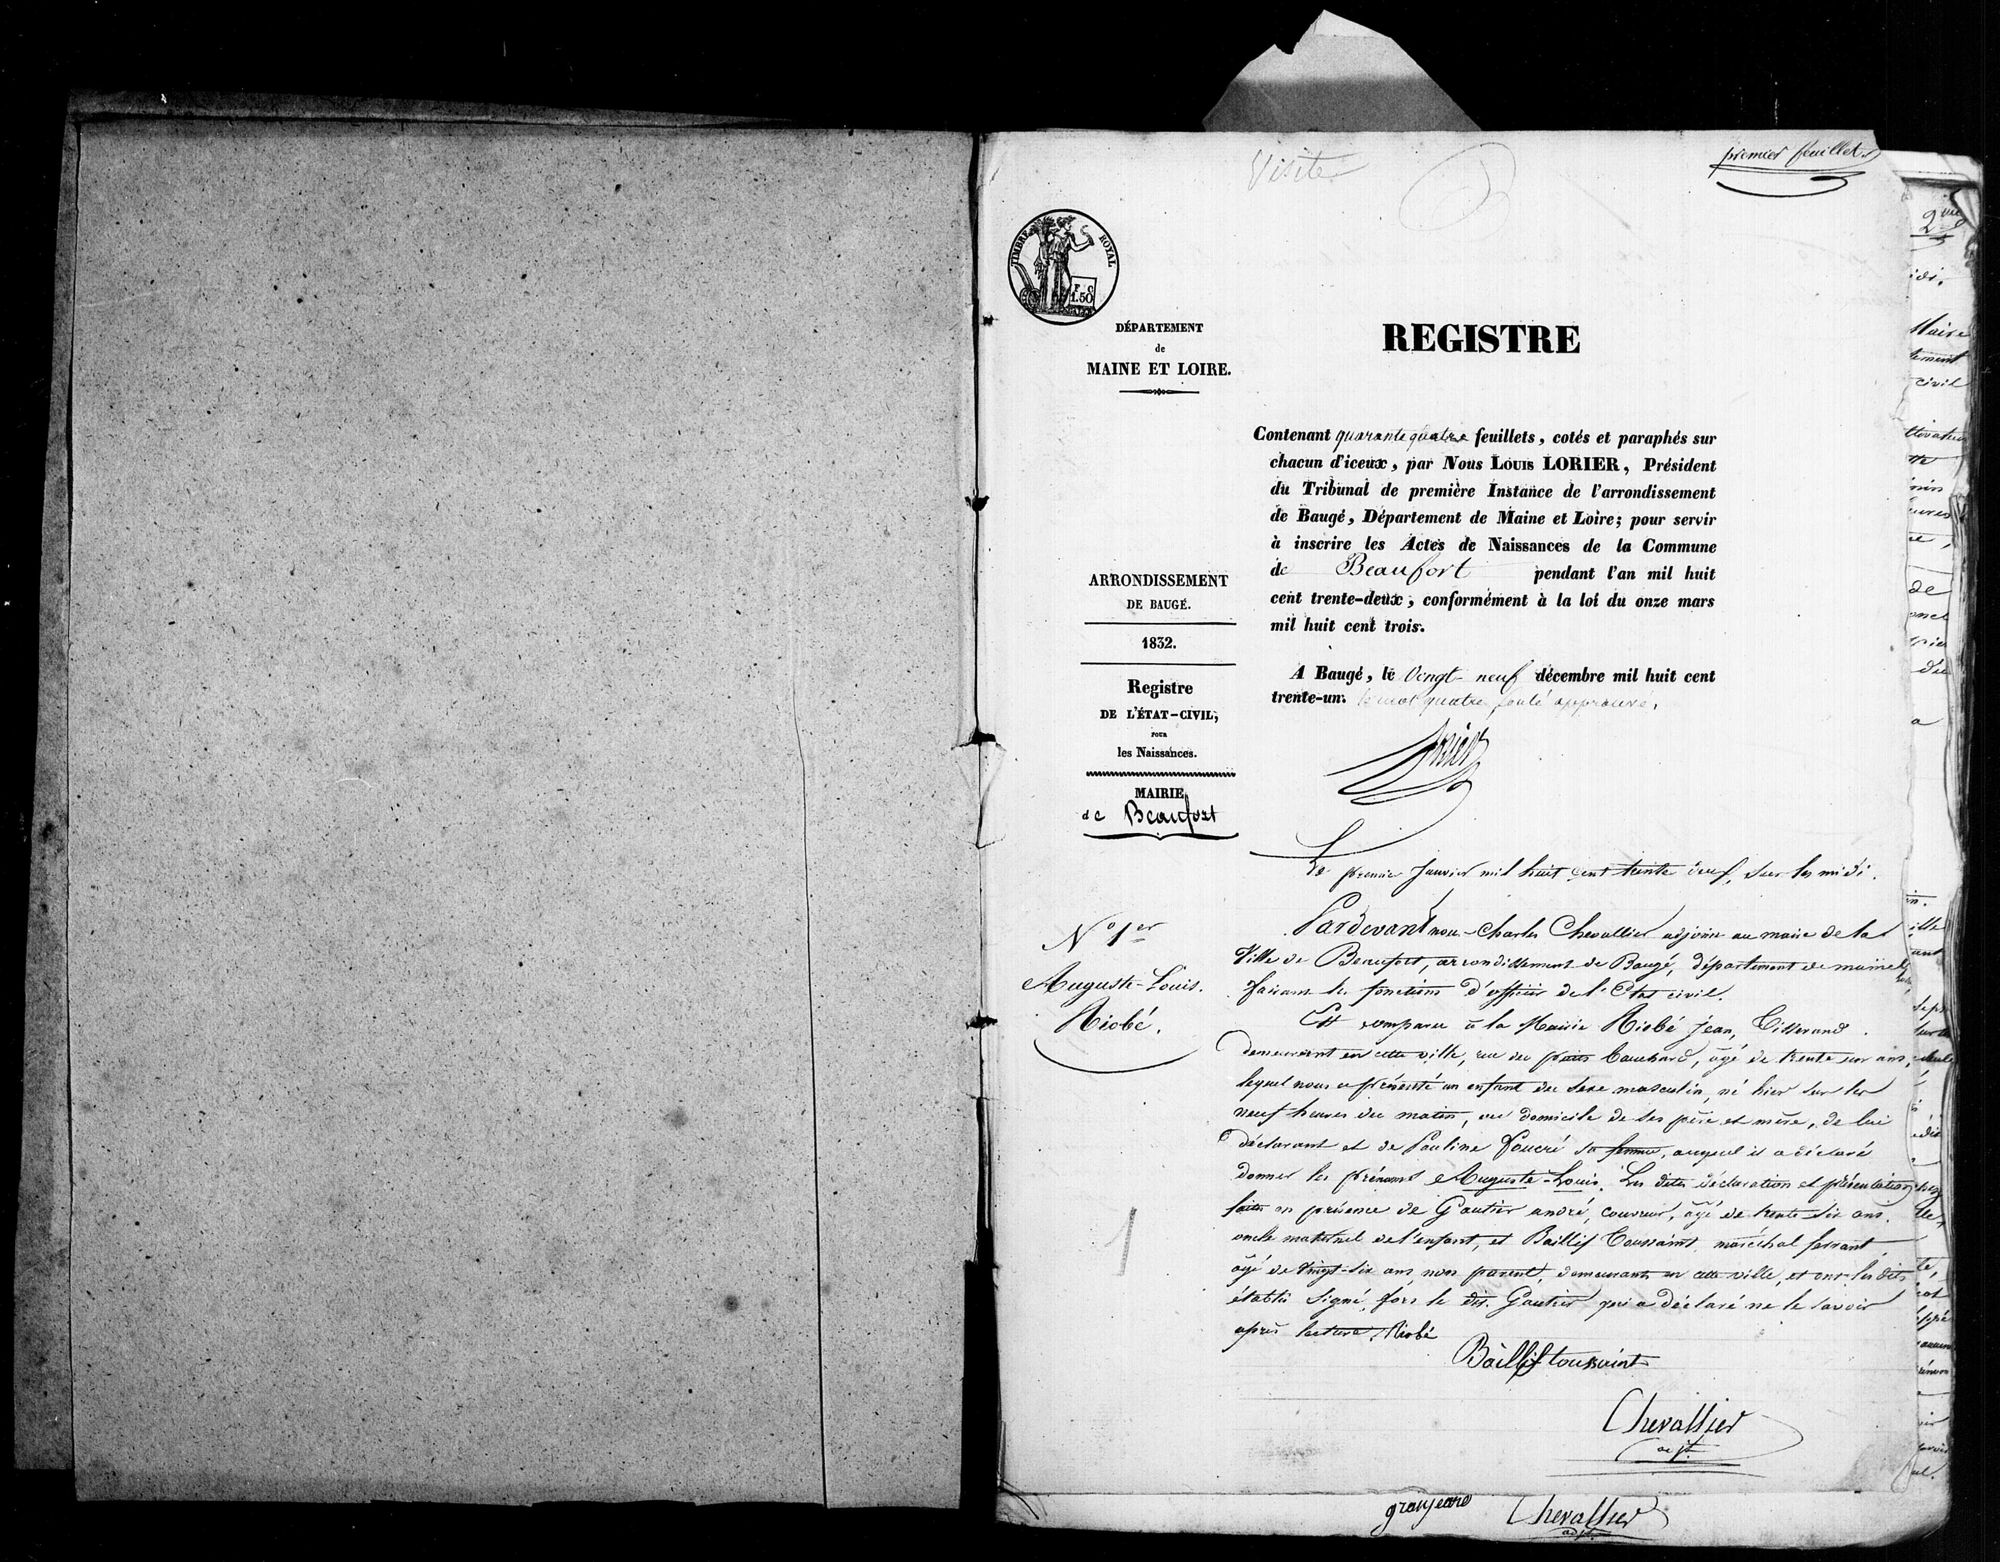 premier feuillet.
Visite
TIMBRE ROYAL
F C
1.50
DÉPARTEMENT
de
MAINE ET LOIRE.
REGISTRE
Contenant quarante quatre feuillets, cotés et paraphés sur
chacun d'iceux, par Nous LOUIS LORIER, Président
du Tribunal de première Instance de l'arrondissement
de Baugé, Département de Maine et Loire; pour servir
à inscrire les Actes de Naissances de la Commune
de Beaufort pendant l'an mil huit
cent trente-deux, conformément à la loi du onze mars
mil huit cent trois.
A Baugé, le Vingt neuf décembre mil huit cent
trente-un. le mot quatre approuvé.
Lorier
ARRONDISSEMENT
DE BAUGÉ.
1832.
Registre
DE L'ÉTAT-CIVIL,
POUR
les Naissances.
MAIRIE
de Beaufort
Le premier Janvier mil huit cent trente deux, sur les midi.
N° 1er
Auguste-Louis
Riobé.
Pardevant nous Charles Chevallier adjoint au maire de la
Ville de Beaufort, arrondissement de Baugé, département de maine et
faisant les fonctions d'officier de l'Etat civil.
Est comparu à la Mairie Riobé Jean, Tisserand
demeurant en cette ville, rue du puits Bouchard, âgé de trente ans,
lequel nous a présenté un enfant du sexe masculin, né hier sur les
neuf heures du matin, au domicile de ses père et mère, de lui
déclarant et de Pauline Foucré sa femme, auquel il a déclaré
donner les prénoms Auguste-Louis. Les dites déclaration et présentation
faites en présence de Gautier andré, couvreur, âgé de trente six ans,
oncle maternel de l'enfant, et Baillif Toussaint, maréchal ferrant
âgé de vingt-six ans, non parent, demeurants en cette ville, et ont les dits
établis signé, fors le dit Gautier qui a déclaré ne le savoir
après lecture. Riobé
Baillif toussaint
Chevallier
adjt.
1
granjeand
Chevallier
adjt.
2me
Maire
civil
de